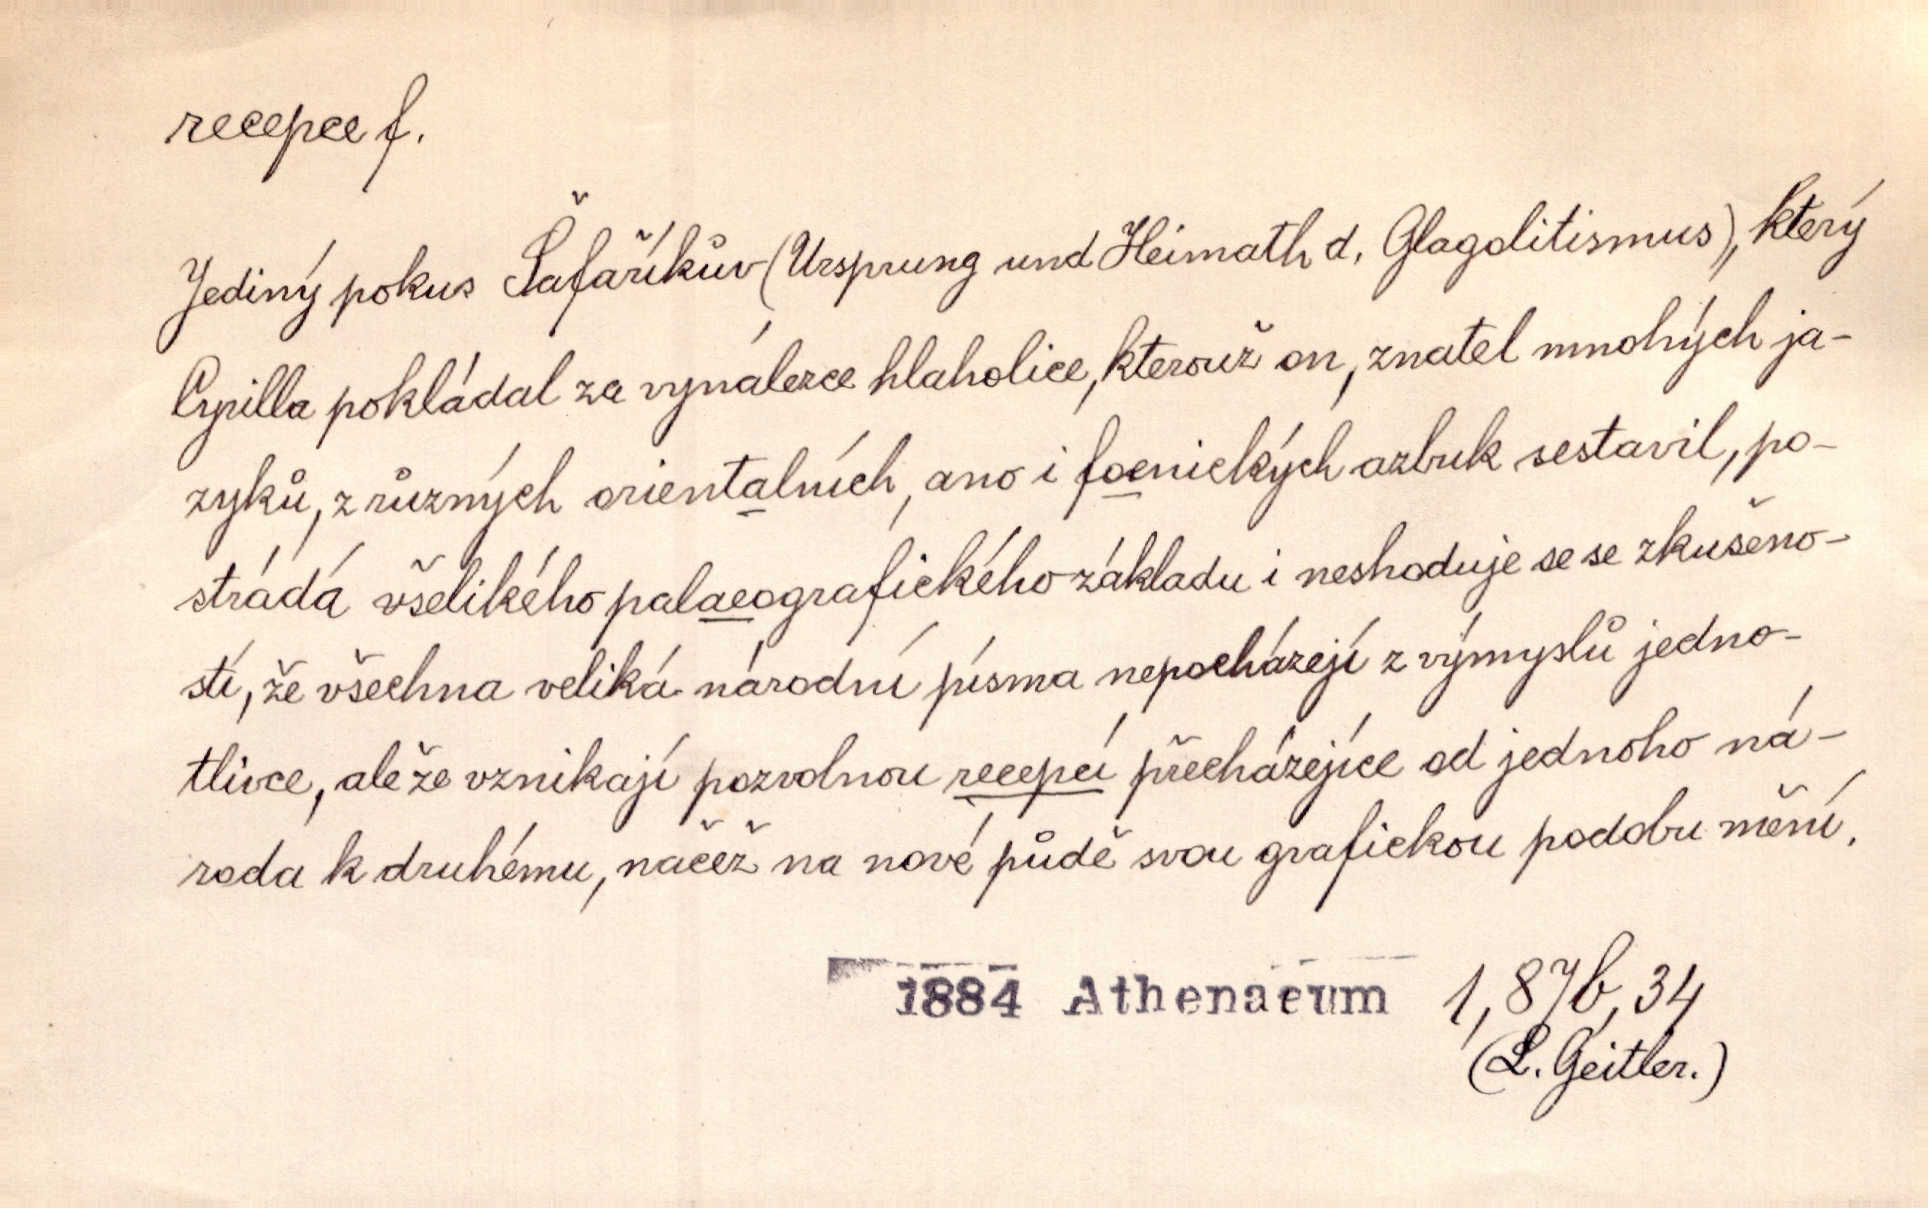 recepce f.
Jediný pokus Šafaříkův (Ursprung und Heimath d. Glagolitismus), který
Cyrilla pokládal za vynálezce hlaholice, kterouž on, znatel mnohých ja-
zyků, z různých orientalních, ano i foenických azbuk sestavil, po-
strádá všelikého palaeografického základu i neshoduje se se zkušeno-
stí, že všechna veliká národní písma nepocházejí z výmyslů jedno-
tlivce, ale že vznikají pozvolnou recepcí přecházejíce od jednoho ná-
roda k druhému, načež na nové půdě svou grafickou podobu mění.
1884 Athenaeum 1, 87b, 34
(L. Geitler.)